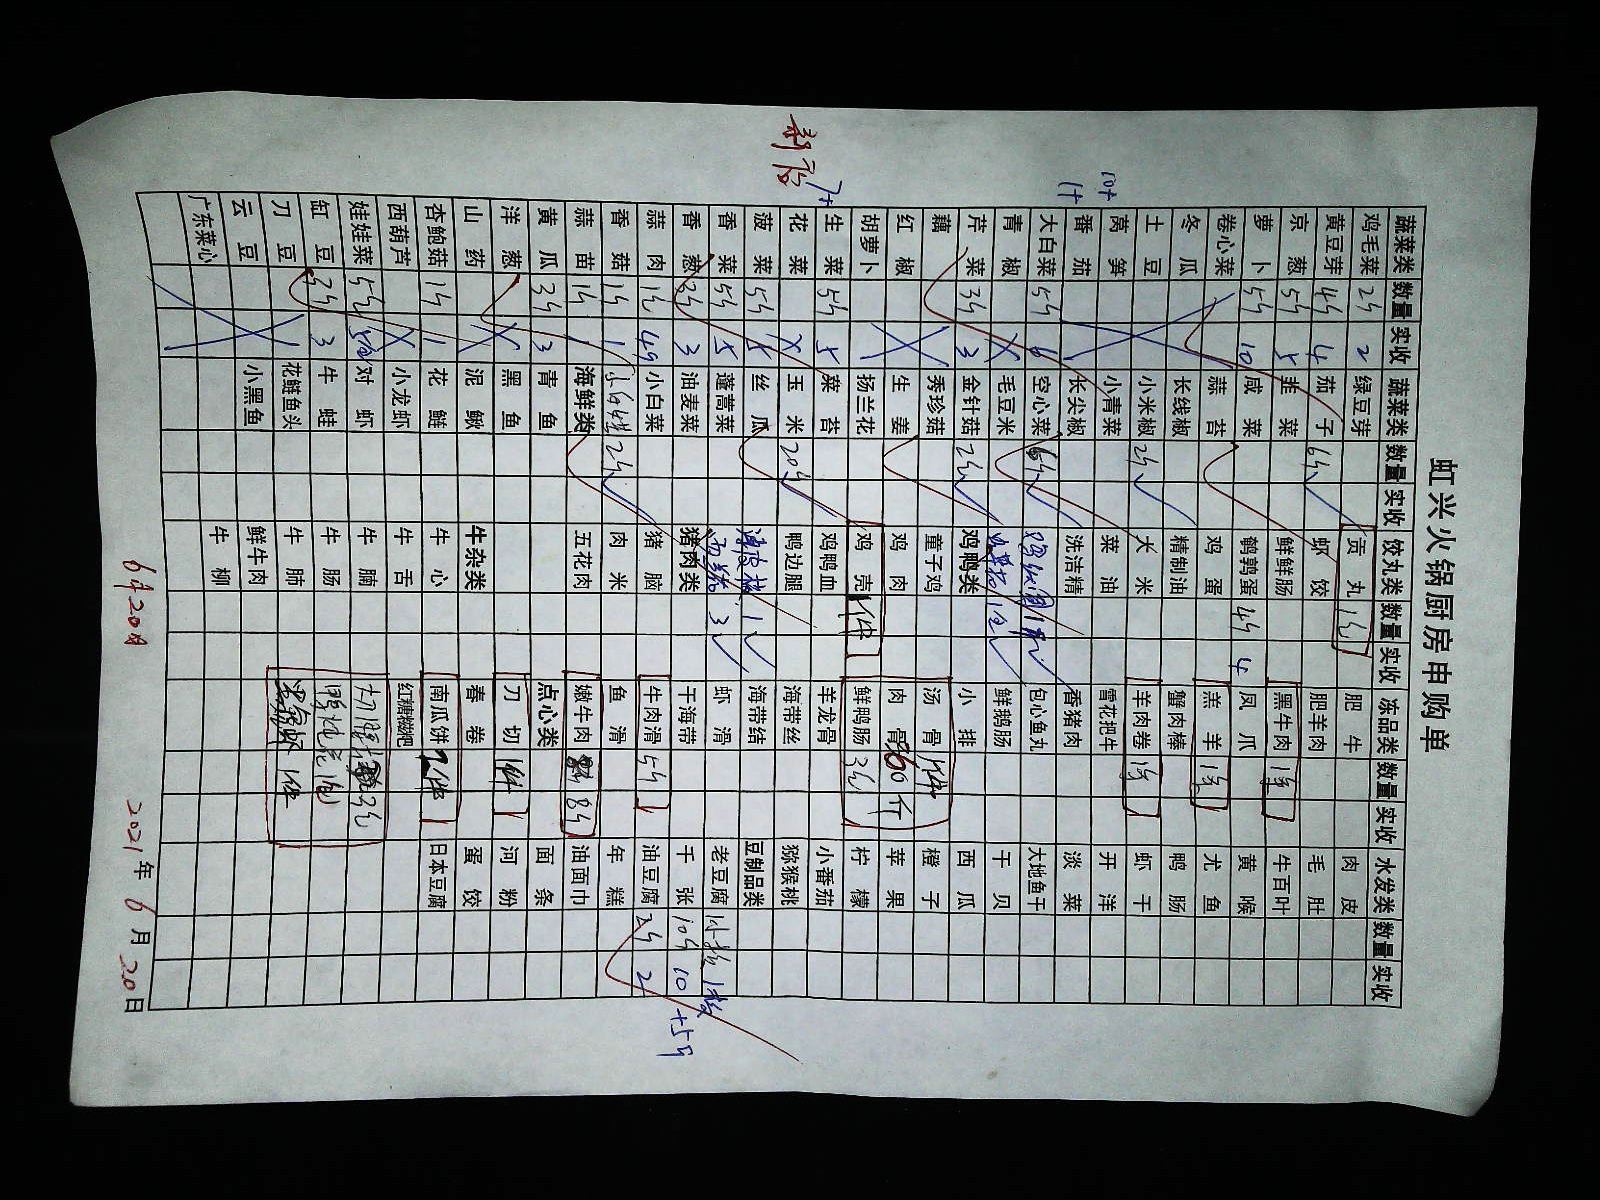 虹兴火锅厨房申购单
蔬菜类 数量 实收 蔬菜类 数量 实收 饺为类 数量 实收 冻品类 数量 实收 水发类 数量 实收
鸡毛菜 2斤 2 绿豆芽 贡丸 肥牛 肉皮
黄豆芽 4斤 4 茄子 6斤 虾饺 肥羊肉 毛肚
京葱 5斤 5 韭菜 鲜鲜肠 黑牛肉 牛百叶
萝卜 5斤 10 咸菜 鹌鹑蛋 4斤 4 凤爪 黄喉
卷心菜 蒜苔 鸡蛋 羔羊 尤鱼
冬瓜 长线椒 精制油 蟹肉棒 鸭肠
土豆 小米椒 2斤 大米 羊肉卷 虾干
莴笋 小青菜 菜油 雪花把牛 开洋
番茄 长尖椒 洗洁精 香猪肉 淡菜
大白菜 5斤 6 空心菜 包心鱼丸 大地鱼干
青椒 毛豆米 鲜鹅肠 干贝
芹菜 3斤 3 金针菇 鸡鸭类 小排 西瓜
藕 秀珍菇 童子鸡 汤骨 橙子
红椒 生姜 鸡肉 肉骨 斤 苹果
胡萝卜 扬兰花 鸡壳 1件 鲜鸭肠 柠檬
生菜 5斤 5 菜苔 鸡鸭血 羊龙骨 小番茄
花菜 玉米 20斤 鸭边腿 海带丝 猕猴桃
菠菜 5斤 5 丝瓜 1 海带结 豆制品类
香菜 5斤 5 蓬蒿菜 3 虾滑 老豆腐
香葱 3斤 3 油麦菜 猪肉类 干海带 千张 10斤 10 +5斤
蒜肉 小白菜 猪脑 牛肉滑 5斤 油豆腐 2斤 2
香菇 1斤 1 2斤 肉米 鱼滑 年糕
蒜苗 1斤 1 海鲜类 五花肉 嫩牛肉 8斤 油面巾
黄瓜 3斤 3 青鱼 点心类 面条
洋葱 黑鱼 刀切 河粉
山药 泥鳅 牛杂类 春卷 蛋饺
杏鲍菇 1斤 1 花鲢 牛心 南瓜饼 日本豆腐
西葫芦 小龙虾 牛舌 红糖糍粑
娃娃菜 5斤 对虾 牛腩
缸豆 3斤 3 牛蛙 牛肠
刀豆 花鲢鱼头 牛肺 1件
云豆 小黑鱼 鲜牛肉
广东菜心 牛柳
新店
10+
1+
7+
6月20日 2021年6月20日